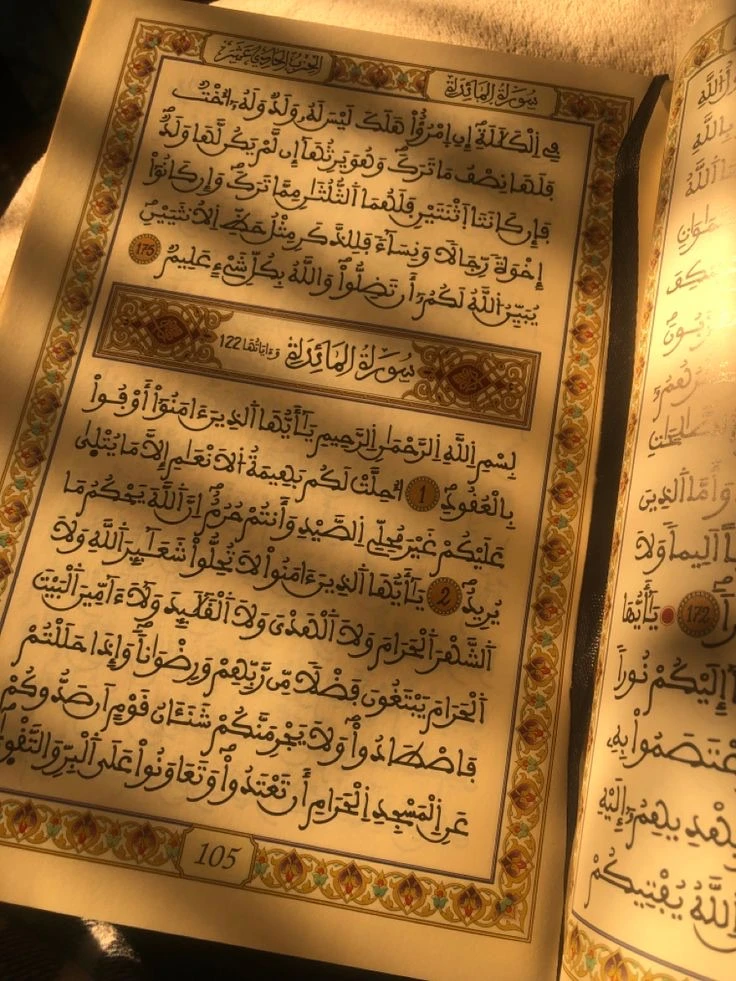 سُورَةُ الْمَائِدَةِ
الحِزْبُ الحَادِي عَشَرَ
فِي اِلْكَلَٰلَةِ إِنِ اِمْرُؤٌاْ هَلَكَ لَيْسَ لَهُۥ وَلَدٌ وَلَهُۥٓ أُخْتٌ
فَلَهَا نِصْفُ مَا تَرَكَ وَهُوَ يَرِثُهَآ إِن لَّمْ يَكُن لَّهَا وَلَدٌ
فَإِن كَانَتَا اَثْنَتَيْنِ فَلَهُمَا اَلثُّلُثَٰنِ مِمَّا تَرَكَ وَإِن كَانُوٓاْ
إِخْوَةً رِّجَالًا وَنِسَآءً فَلِلذَّكَرِ مِثْلُ حَظِّ اِلْأُنثَيَيْنِ
يُبَيِّنُ اُللَّهُ لَكُمُۥٓ أَن تَضِلُّواْ وَاللَّهُ بِكُلِّ شَےْءٍ عَلِيمٌ 175
سُورَةُ الْمَائِدَةِ وَءَايَاتُهَا 122
بِسْمِ اِللَّهِ اِلرَّحْمَٰنِ اِلرَّحِيمِ يَٰٓأَيُّهَا اَلَّذِينَ ءَامَنُوٓاْ أَوْفُواْ
بِالْعُقُودِ 1 أُحِلَّتْ لَكُم بَهِيمَةُ اُلْأَنْعَٰمِ إِلَّا مَا يُتْلَىٰ
عَلَيْكُمْ غَيْرَ مُحِلِّي اِلصَّيْدِ وَأَنتُمْ حُرُمٌ إِنَّ اَللَّهَ يَحْكُمُ مَا
يُرِيدُ 2 يَٰٓأَيُّهَا اَلَّذِينَ ءَامَنُواْ لَا تُحِلُّواْ شَعَٰٓئِرَ اَللَّهِ وَلَا
اَلشَّهْرَ اَلْحَرَامَ وَلَا اَلْهَدْىَ وَلَا اَلْقَلَٰٓئِدَ وَلَآ ءَآمِّينَ اَلْبَيْتَ
اَلْحَرَامَ يَبْتَغُونَ فَضْلًا مِّن رَّبِّهِمْ وَرِضْوَٰنًا وَإِذَا حَلَلْتُمْ
فَاصْطَادُواْ وَلَا يَجْرِمَنَّكُمْ شَنَـَٔانُ قَوْمٍ أَن صَدُّوكُمْ
عَنِ اِلْمَسْجِدِ اِلْحَرَامِ أَن تَعْتَدُواْ وَتَعَاوَنُواْ عَلَى اَلْبِرِّ وَالتَّقْوَىٰ
105
بِاللَّهِ
وَأَمَّا اَلَّذِينَ
أَلِيمًا وَلَا
172 يَٰٓأَيُّهَا
إِلَيْكُمْ نُورًا
اللَّهُ يُفْتِيكُمْ